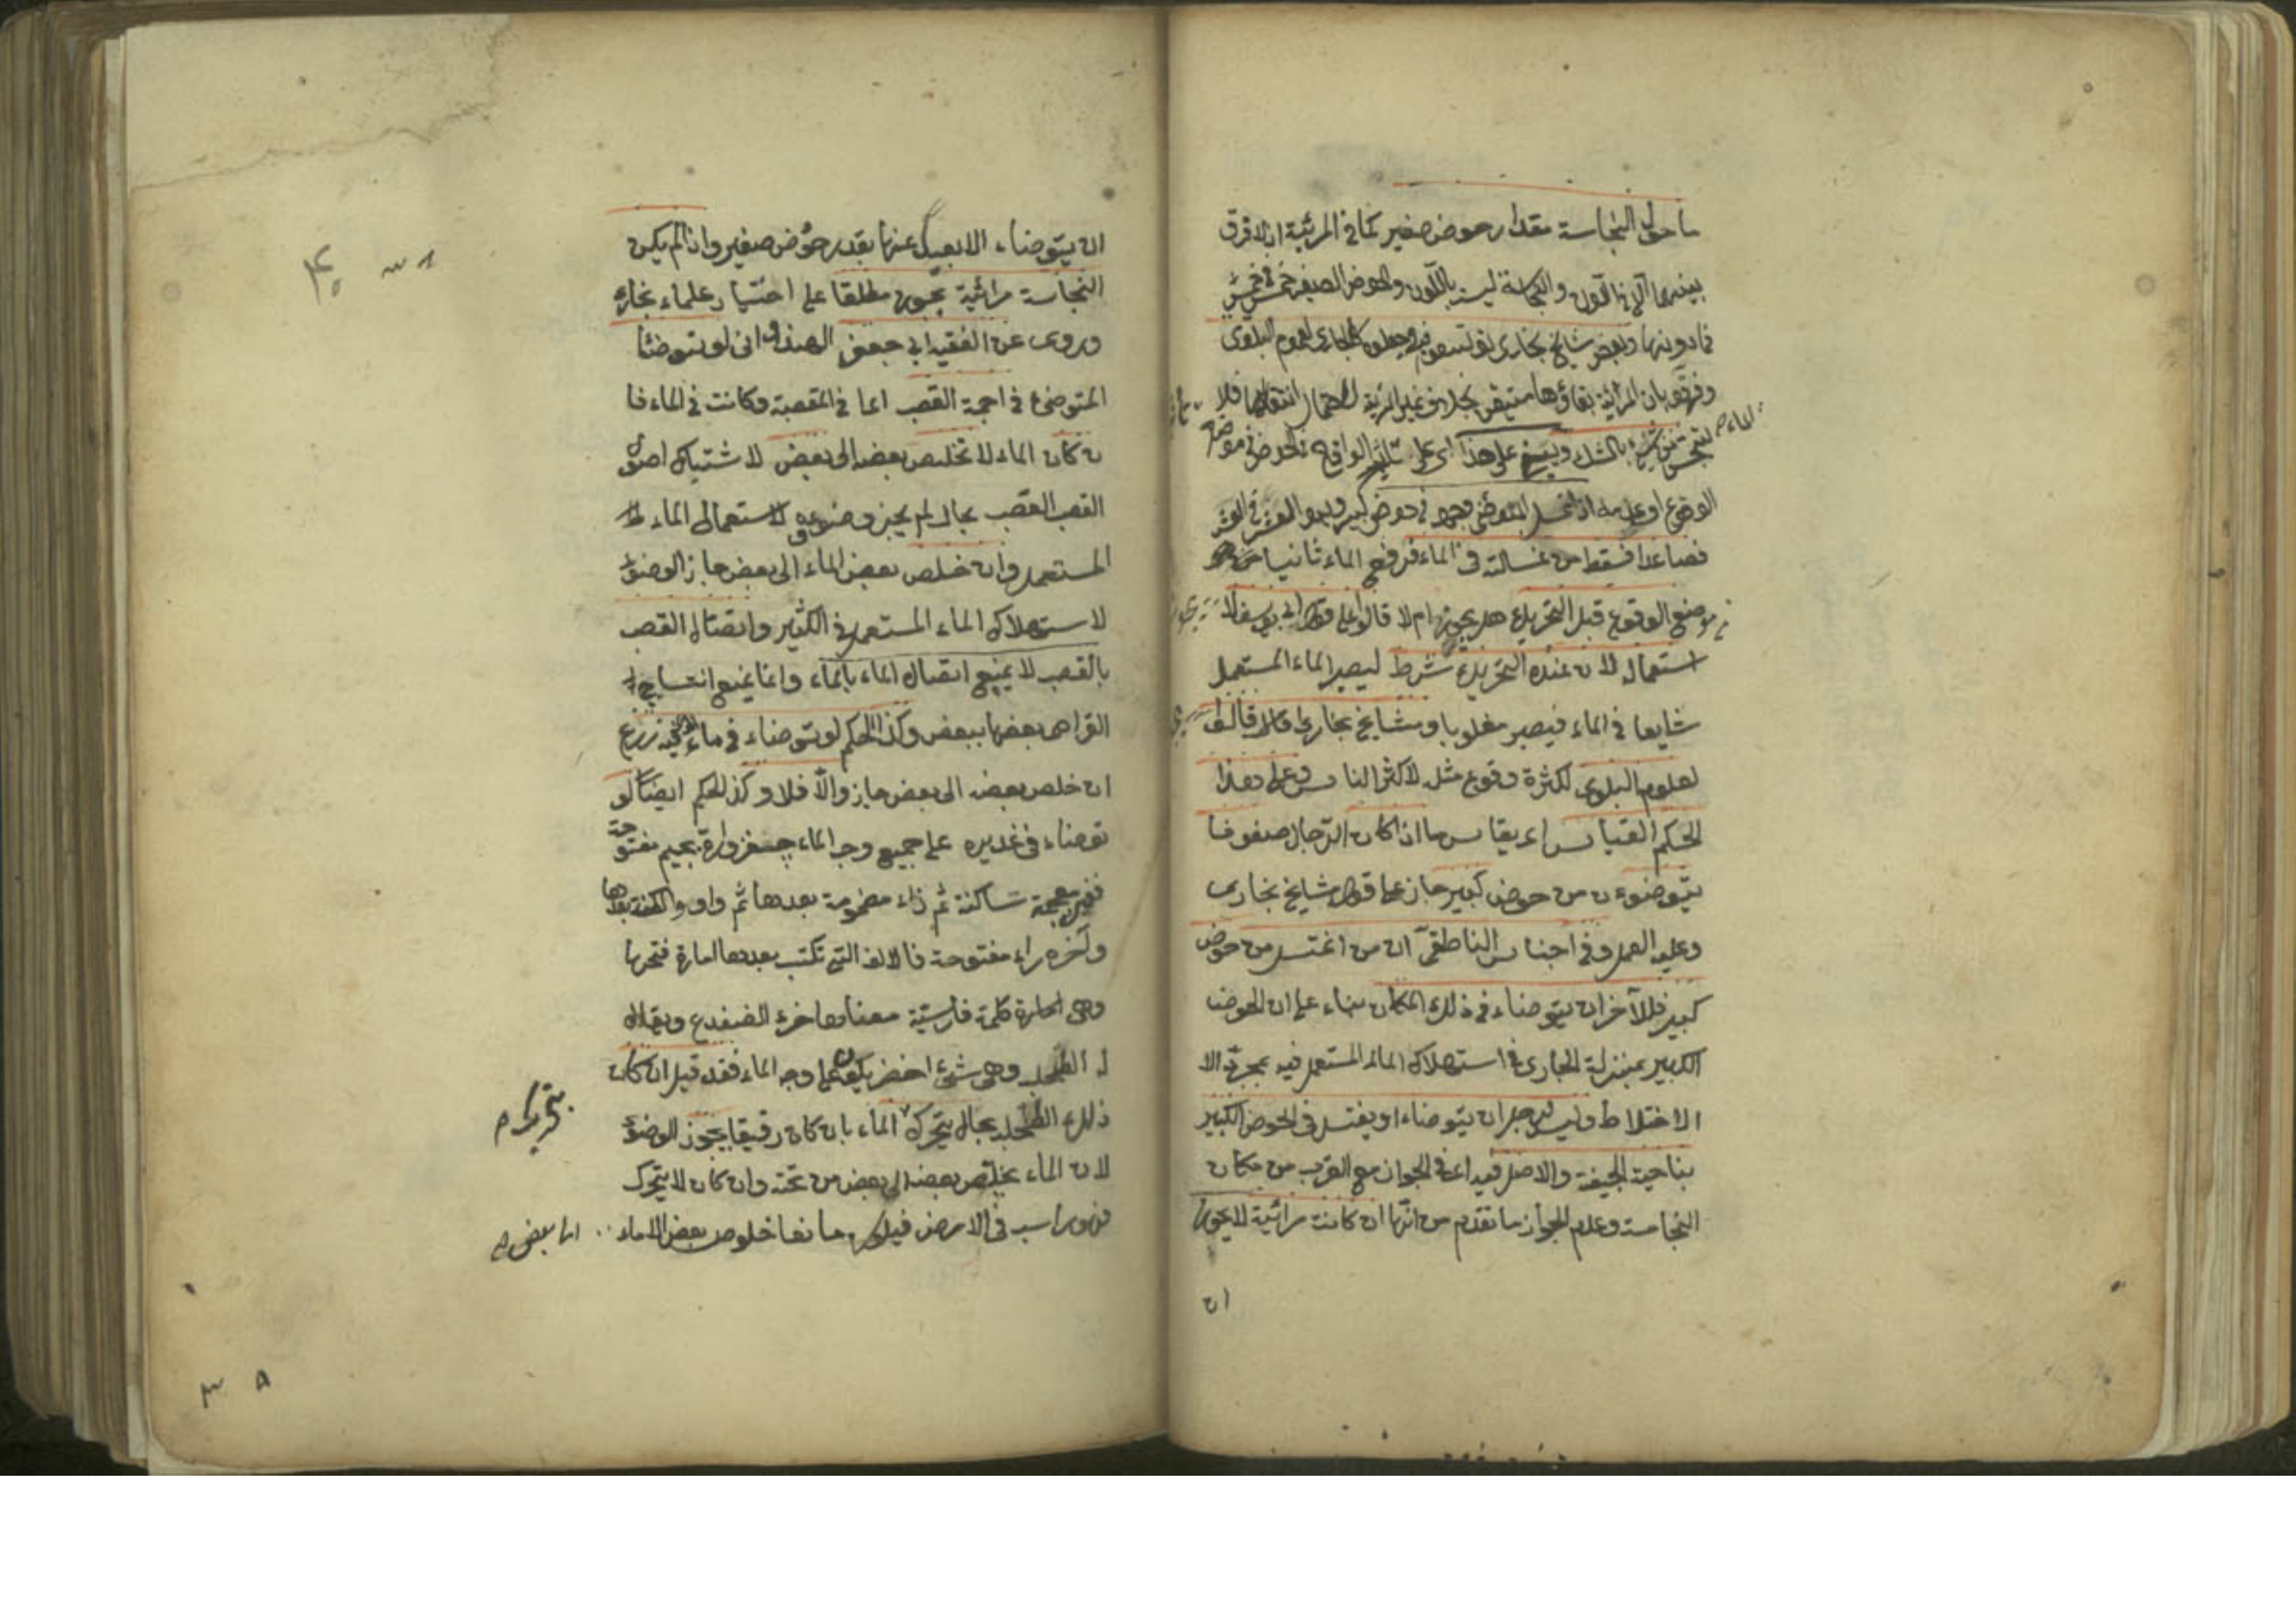 ما حول النجاسة مقدار حوض صغير كما في المرئية اذ لا فرق
بينهما الا في اللون والنجاسة ليست باللون والحوض الصغير خمس في خمس
فما دونها وبعض مشايخ بخارى توسعوا فيه وجعلوه كالجاري لعموم البلوى
وفرقوا بان المرئية بقاؤها متيقن بخلاف غير المرئية لاحتمال انتقالها فلا
بالشك ويبتنى على هذا اى على الواقع في الحوض في موضع
الماء
الوضوء او عدمه اذا غسل المتوضئ وجهه في حوض كبير وهو العشر في العشر
فصاعدا فسقط من غسالته في الماء فرفع الماء ثانيا من
موضع الوقوع قبل التحريك هل يجوز ام لا قالوا على قول ابى يوسف لا
استعماله لان عنده التحريك شرط ليصير الماء المستعمل
شايعا في الماء فيصير مغلوبا ومشايخ بخارى قالوا
لعلوم البلوى لكثرة وقوع مثله لاكثر الناس وعلى هذا
الحكم القياس اى يقاس ما اذا كان الرجال صفوفا
يتوضؤن من حوض كبير جاز على قول مشايخ بخارى
وعليه العمل وفي اجناس الناطقى ان من اغتسل من حوض
كبير فللآخر ان يتوضاء في ذلك المكان بناء على ان الحوض
الكبير بمنزلة الجارى في استهلاك الماء المستعمل فيه بمجرد الا
الاختلاط وليس لرجل ان يتوضاء او يغتسل في الحوض الكبير
بناحية الجيفة والاصل فيه اى في الجواز مع القرب من مكان
النجاسة وعدم الجواز ما تقدم من انها ان كانت مرائية لا يجوز
ان
ان يتوضاء الا بعيدا عنها بقدر حوض صغير واذا لم يكن
النجاسة مرائية يجوز مطلقا على اختيار علماء بخارى
وروى عن الفقيه ابى جعفر الهندوانى لو توضئا
المتوضئ في اجمة القصب اما في المقصبة وكانت في الماء فا
ن كان الماء لا تخلص بعضه الى بعض لا شتباك اصول
القصب القصب بحال لم يجز وضوءه لاستعمال الماء
المستعمل وان خلص بعض الماء الى بعض جاز الوضوء
لاستهلاك الماء المستعمل في الكثير واتصال القصب
بالقصب لا يمنع اتصال الماء بالماء وانما يمنع انتساج
القراص بعضها ببعض وكذا الحكم لو توضاء في ماء فيه زرع
ان خلص بعضه الى بعض جاز والا فلا وكذا الحكم ايضا لو
توضاء في غديره على جميع وجه الماء جغزوارة بجيم مفتوحة
فغين معجمة ساكنة ثم زاء مضمومة بعدها ثم واو والف بعدها
وآخره راء مفتوحة فالالف التى تكتب بعدها امارة فتحها
وهى كلمة فارسية معناها خرء الضفدع ويقال
له الطحلب وهى شئ اخضر يكون على وجه الماء فقد قيل ان كان
ذلك الطحلب بحال يتحرك الماء بان كان رقيقا يجوز الوضوء
بتحريك م
لان الماء يخلص بعضه الى بعض من تحته وان كان لا يتحرك
فهو راسب في الارض فيكون مانعا خلوص بعض الماء